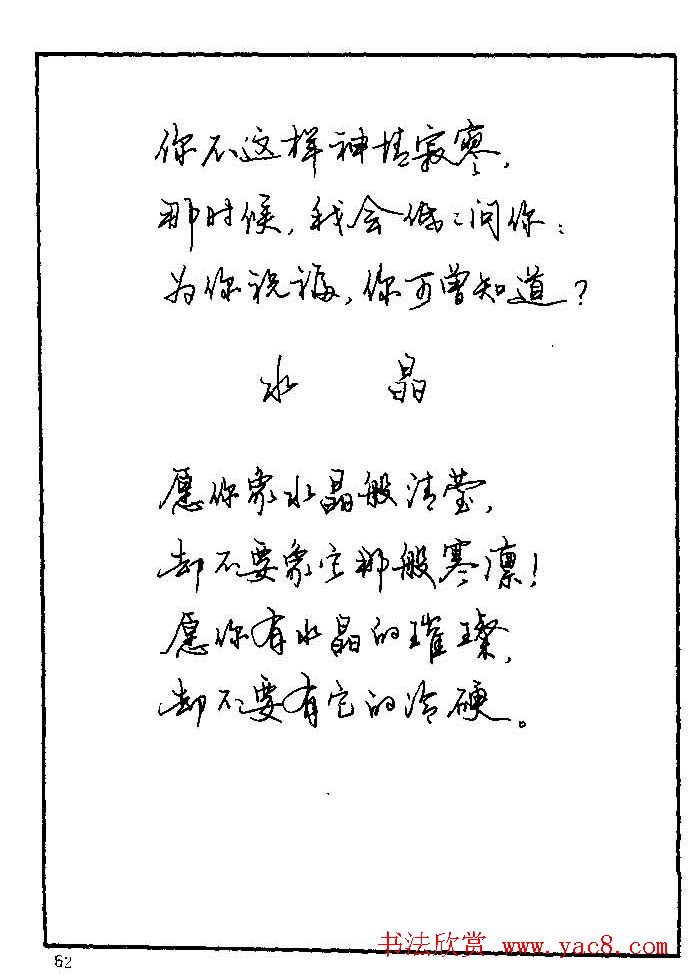 你不这样神情寂寥，
那时候，我会低低问你：
为你祝祷，你可曾知道？
水 晶
愿你象水晶般清莹，
却不要象它那般寒凛！
愿你有水晶的璀璨，
却不要有它的冷硬。
62
书法欣赏 www.yac8.com